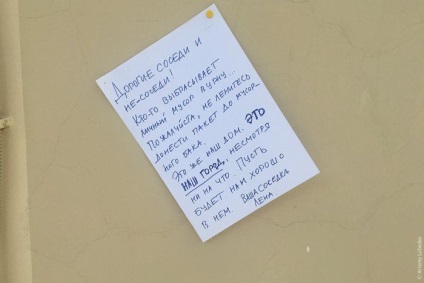 Дорогие соседи и
не-соседи!
Кто-то выбрасывает
личный мусор в урну...
Пожалуйста, не ленитесь
донести пакет до мусор-
ного бака.
Это же наш дом. Это
наш город, несмотря
ни на что. Пусть
будет нам хорошо
в нем. Ваша соседка
Лена.